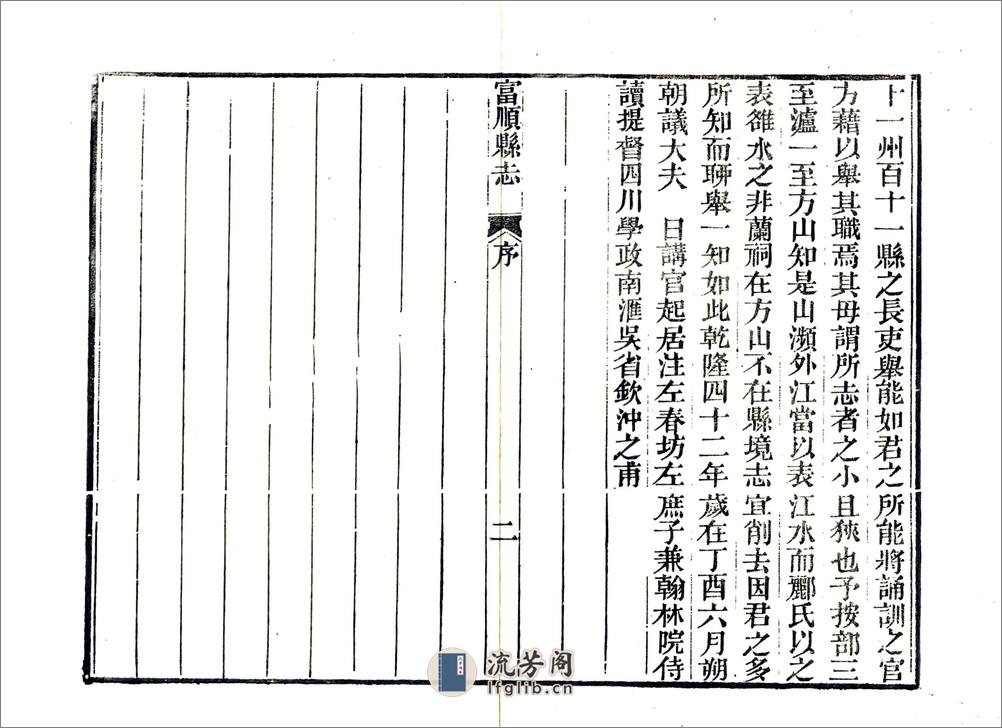 十一州百十一縣之長吏舉能如君之所能將誦訓之官
方藉以舉其職焉其毋謂所志者之小且狹也予按部三
至瀘一至方山知是山瀕外江當以表江水而酈氏以之
表雒水之非蘭祠在方山不在縣境志宜削去因君之多
所知而聊舉一知如此乾隆四十二年歲在丁酉六月朔
朝議大夫 日講官起居注左春坊左庶子兼翰林院侍
讀提督四川學政南滙吳省欽沖之甫
富順縣志 序 二
流芳阁
lfglib.cn